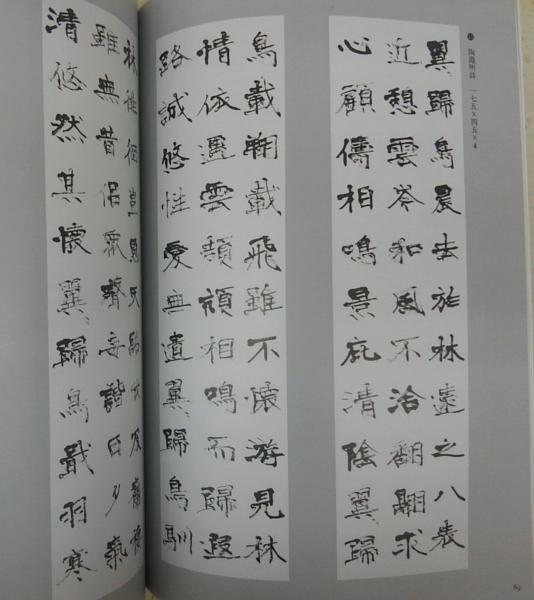 陶淵明詩 一七五×四五×4
翼〻歸鳥晨去於林遠之八表
近憩雲岑和風不洽翻翮求
心顧儔相鳴景庇清陰翼〻歸
鳥載翔載飛雖不懷游見林
情依遇雲頡頏相鳴而歸遐
路誠悠性愛無遺翼〻歸鳥馴
林徘徊豈思天路欣及舊棲
雖無昔侶衆聲每諧日夕氣
清悠然其懷翼〻歸鳥戢羽寒
69